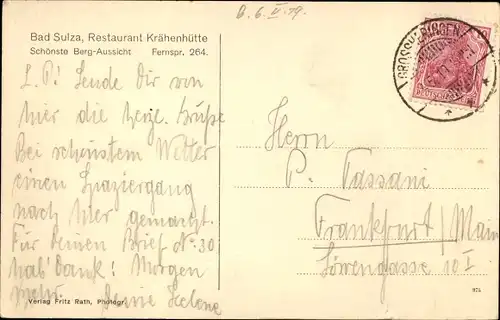 B. 6. V. 19.
Bad Sulza, Restaurant Krähenhütte
Schönste Berg-Aussicht Fernspr. 264.
GROSSHERINGEN
DEUTSCHES REICH
L. P.! Sende Dir von
hier die herzl. Grüße
Bei schönstem Wetter
einen Spaziergang
nach hier gemacht.
Für Deinen Brief No. 30
hab' Dank! Morgen
mehr. Deine Helene
Herrn
P. Tassani
Frankfurt / Main
Löwengasse 10 I
Verlag Fritz Rath, Photogr.